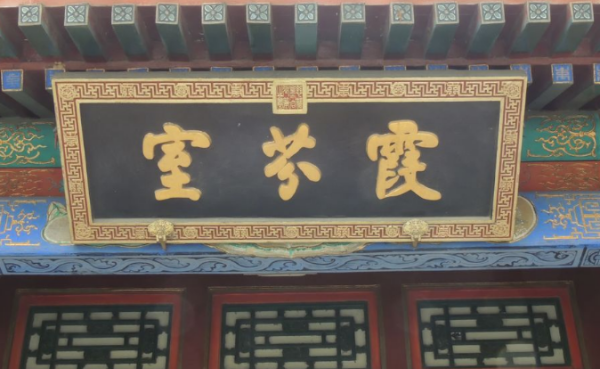 霞芬室